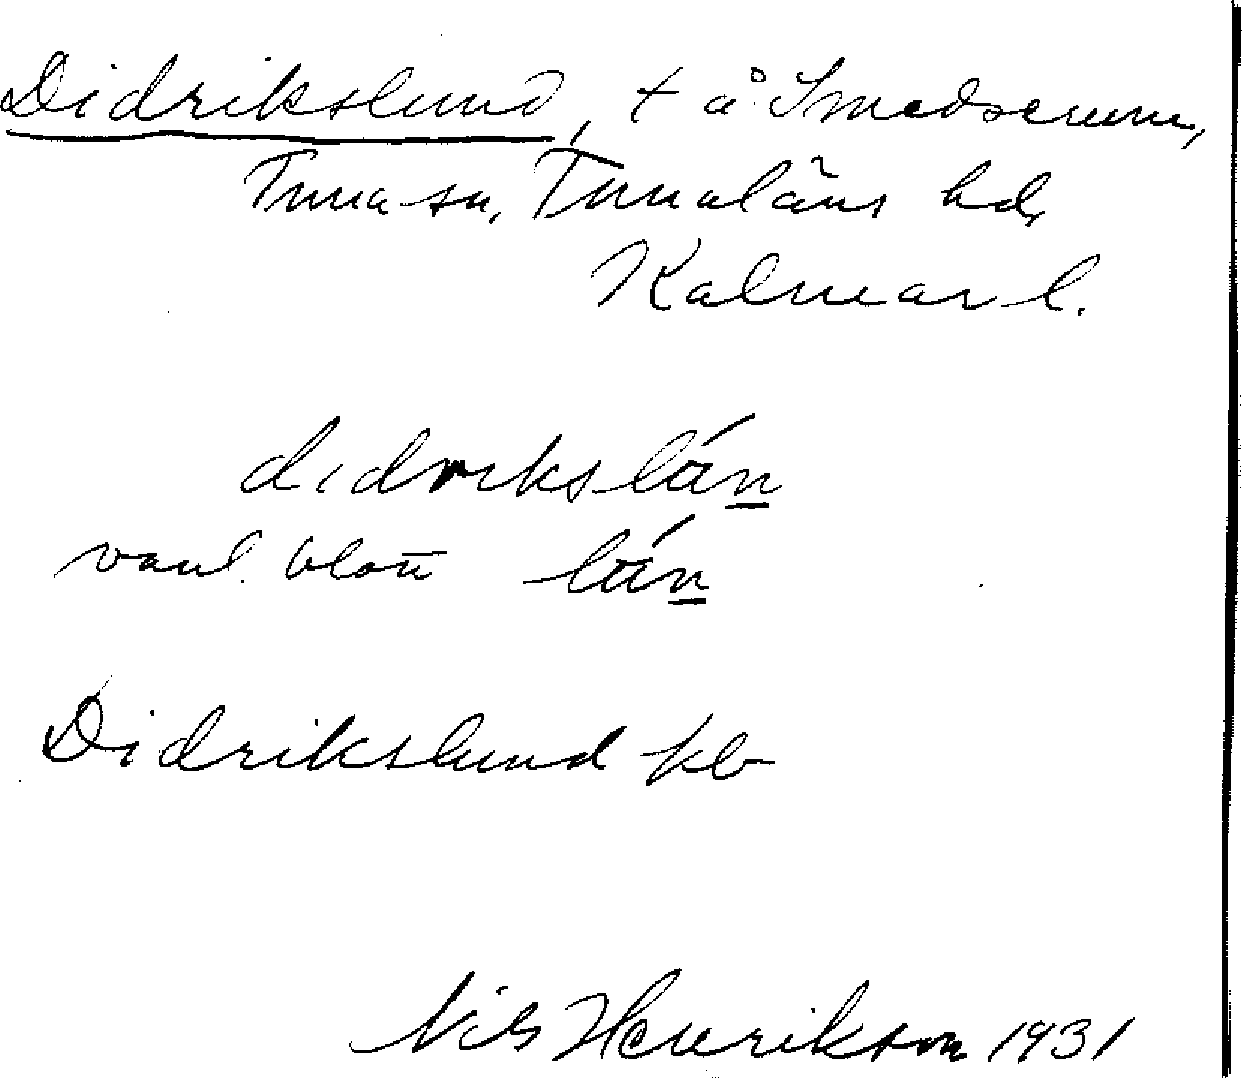 Didrikslund, t å Smedserum,
Tuna sn, Tunaläns hd,
Kalmar l.
didrikslón
vanl. blott lón
Didrikslund kb
Nils Henrikson 1931